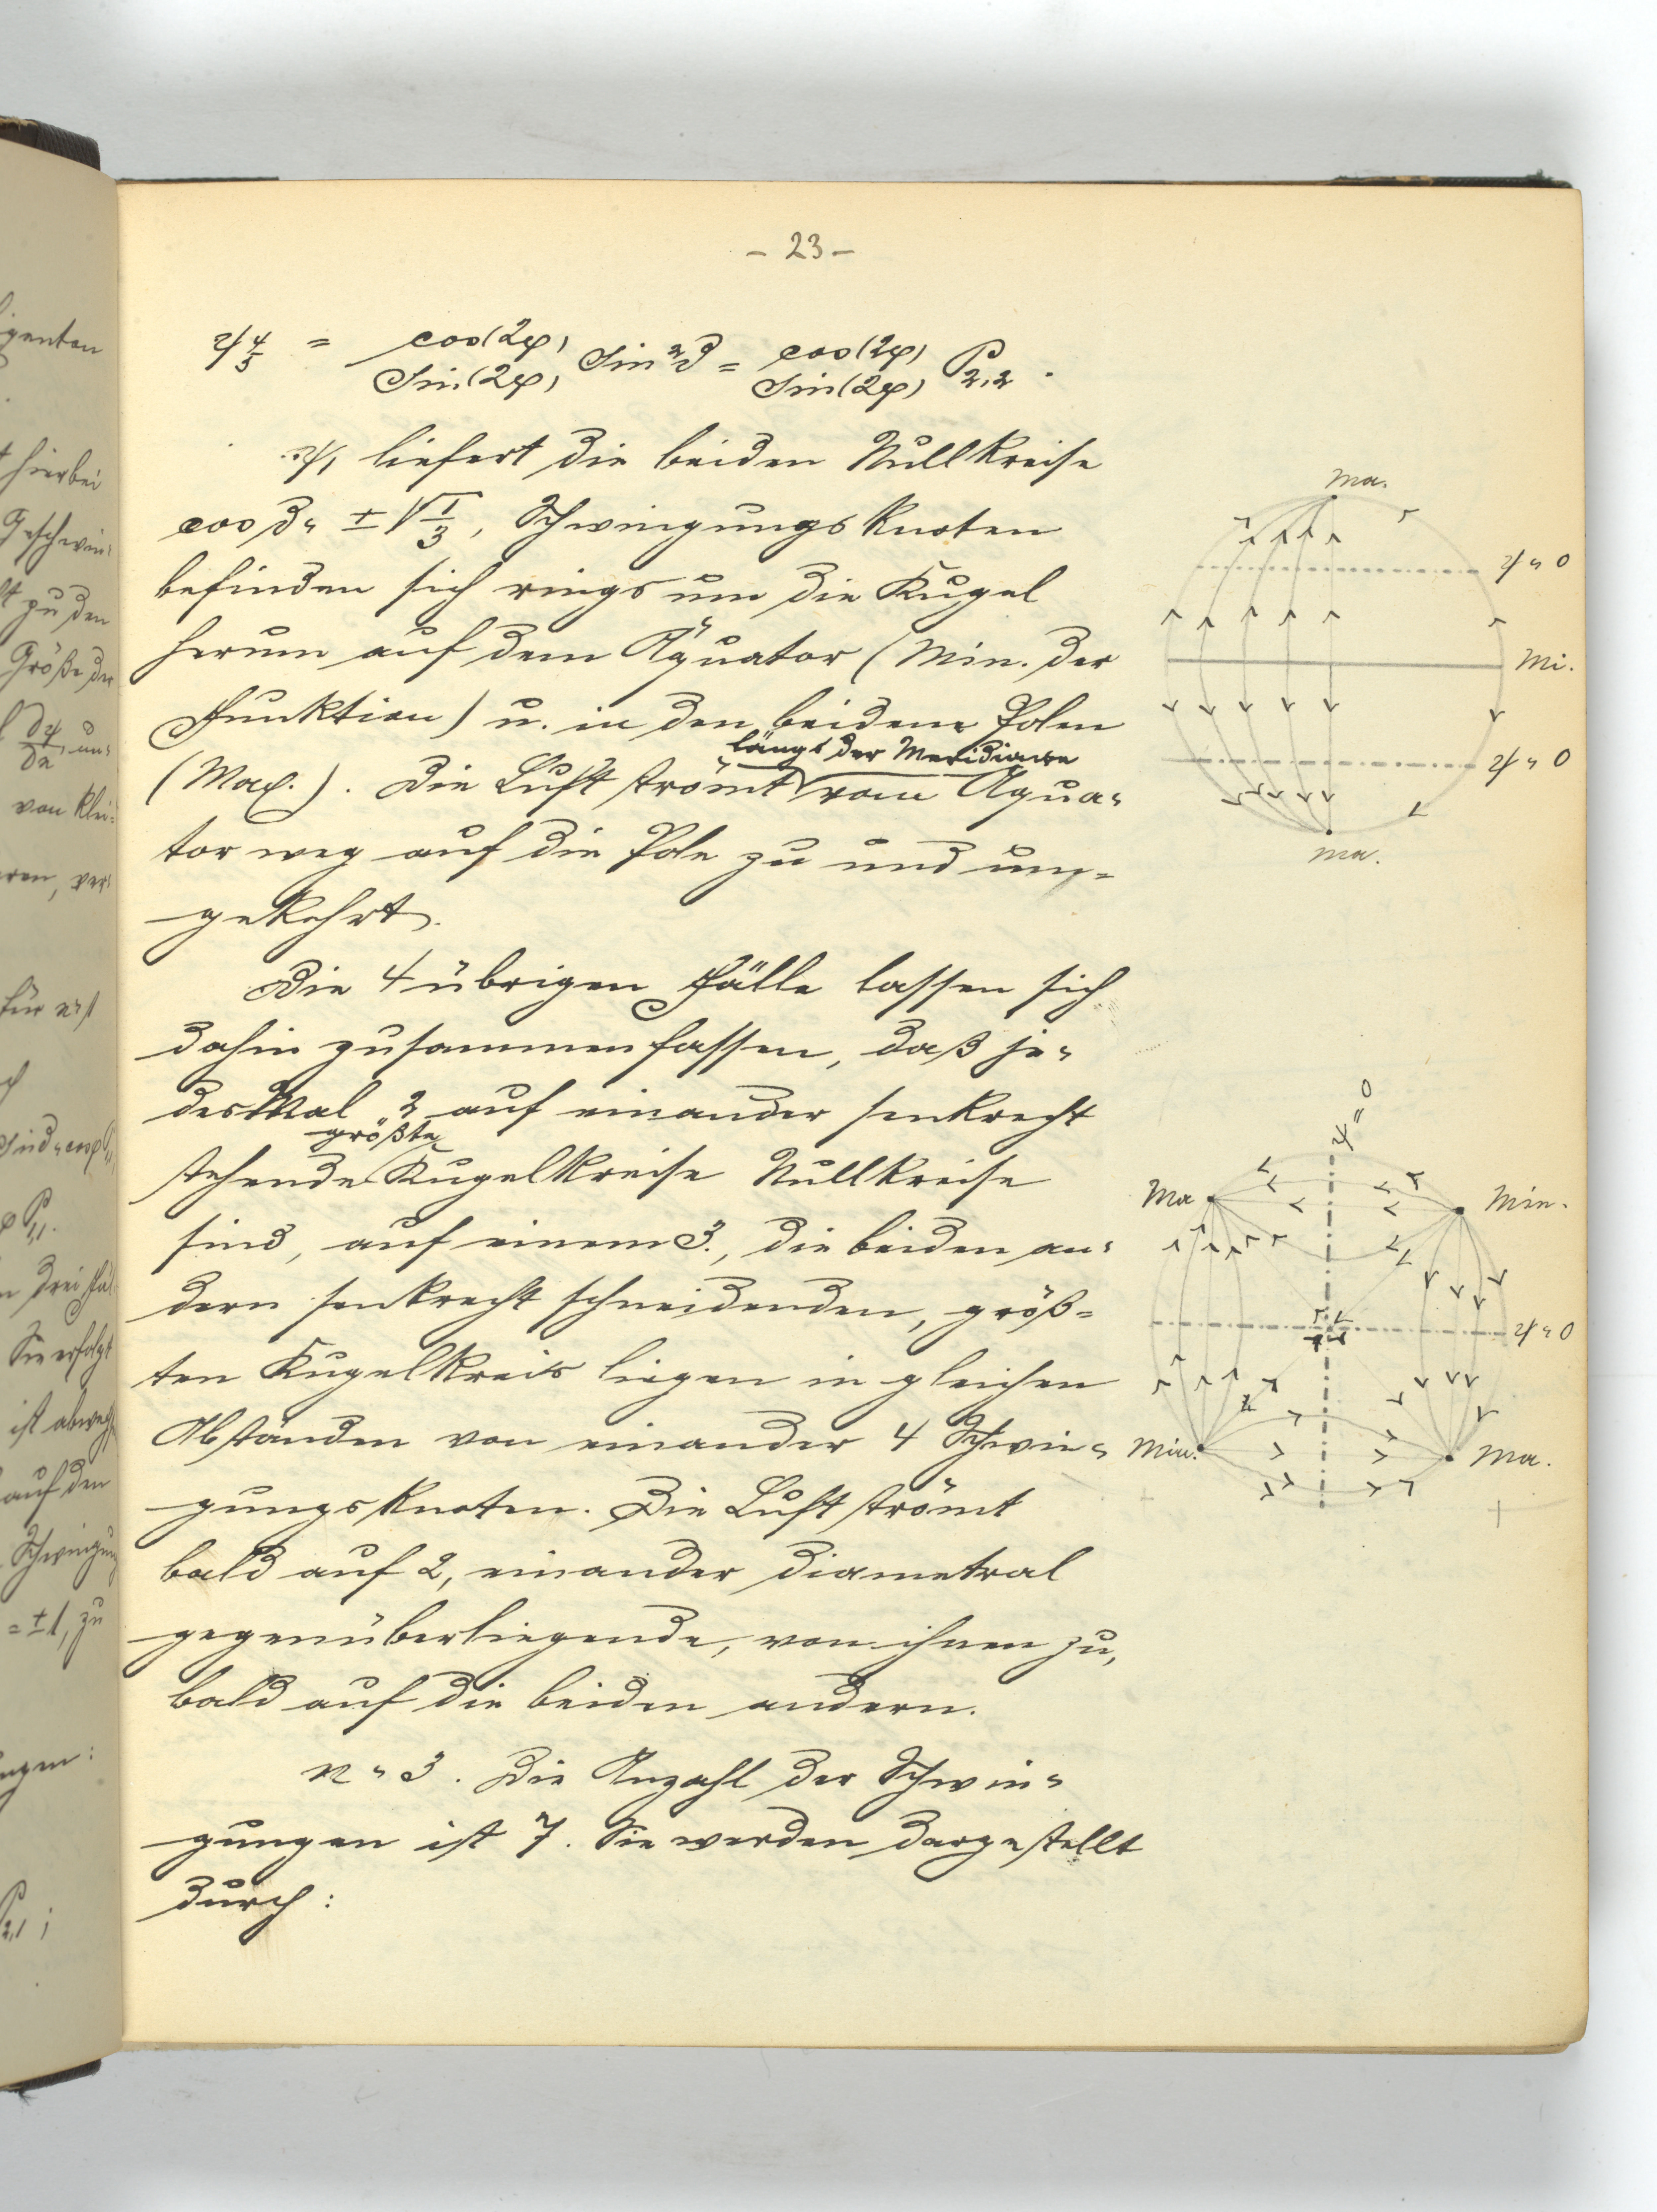 - 23 -
ψ 4 5 = cos(2φ) sin(2φ) sin²ϑ = cos(2φ) sin(2φ) P2,2 .
ψ1 liefert die beiden Nullkreise
cos ϑ = ± √1/3, Schwingungsknoten
befinden sich rings um die Kugel
herum auf dem Äquator (Min. der
Funktion) u. in den beiden Polen
(Max.). Die Luft strömt längs der Meridiane vom Äqua=
tor weg auf die Pole zu und um=
gekehrt.
Die 4 übrigen Fälle lassen sich
dahin zusammenfassen, daß je=
desMal 2 auf einander senkrecht
stehende größte Kugelkreise Nullkreise
sind, auf einem 3., die beiden an=
dern senkrecht schneidenden, größ=
ten Kugelkreis liegen in gleichen
Abständen von einander 4 Schwin=
gungsknoten. Die Luft strömt
bald auf 2, einander diametral
gegenüberliegende, von ihnen zu,
bald auf die beiden andern.
n = 3. Die Anzahl der Schwin=
gungen ist 7. Sie werden dargestellt
durch:
Ma.
ψ = 0
Mi.
ψ = 0
Ma.
ψ = 0
Ma
Min.
ψ = 0
Min.
Ma.
igenten
hierbei
Geschwin=
zu den
Größe der
dψ
un=
von klei=
ver=
für n=1
P1,1.
drei Fäl
Sie erfolgt
ist abwech
auf den
Schwingung
= ±1, zu
ungen:
P2,1;